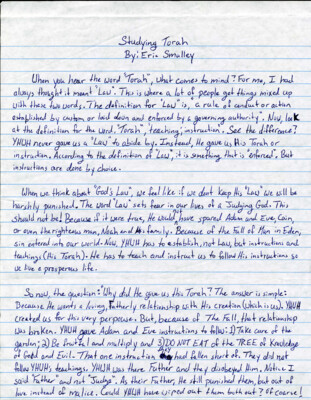 Studying Torah
By: Eric Smalley
When you hear the word "Torah", what comes to mind? For me, I had
always thought it meant "Law". This is where a lot of people get things mixed up
with these two words. The definition for "Law" is, a rule of conduct or action
established by custom or laid down and enforced by a governing authority". Now, look
at the definition for the word, "Torah", teaching; instruction. See the difference?
YHWH never gave us a "Law" to abide by. Instead, He gave us His Torah or
instruction. According to the definition of "Law", it is something that is "enforced". But
instructions are done by choice.
When we think about "God's Law", we feel like if we don't keep His "Law" we will be
harshly punished. The word "Law" sets fear in our lives of a Judging God. This
should not be! Because if it were true, He would have spared Adam and Eve, Cain,
or even the righteous man, Noah and His family. Because of the Fall of Man in Eden,
sin entered into our world. Now YHWH has to establish, not Law, but instructions and
teachings (His Torah). He has to teach and instruct us to follow His instructions so
we live a prosperous life.
So now, the question: "Why did He gave us His Torah? The answer is simple:
Because He wants a loving, fatherly relationship with His creation (which is us). YHWH
created us for this very purpose. But, because of The Fall, that relationship
was broken. YHWH gave Adam and Eve instructions to follow: 1) Take care of the
garden; 2) Be fruitful and multiply and 3) DO NOT EAT of the TREE of Knowledge
of Good and Evil. That one instruction they had fallen short of. They did not
follow YHWH's teachings. YHWH was there Father and they disobeyed Him. Notice I
said "Father" and not "Judge". As their Father, He still punished them, but out of
love instead of malice. Could YHWH have wiped out them both out? Of course!